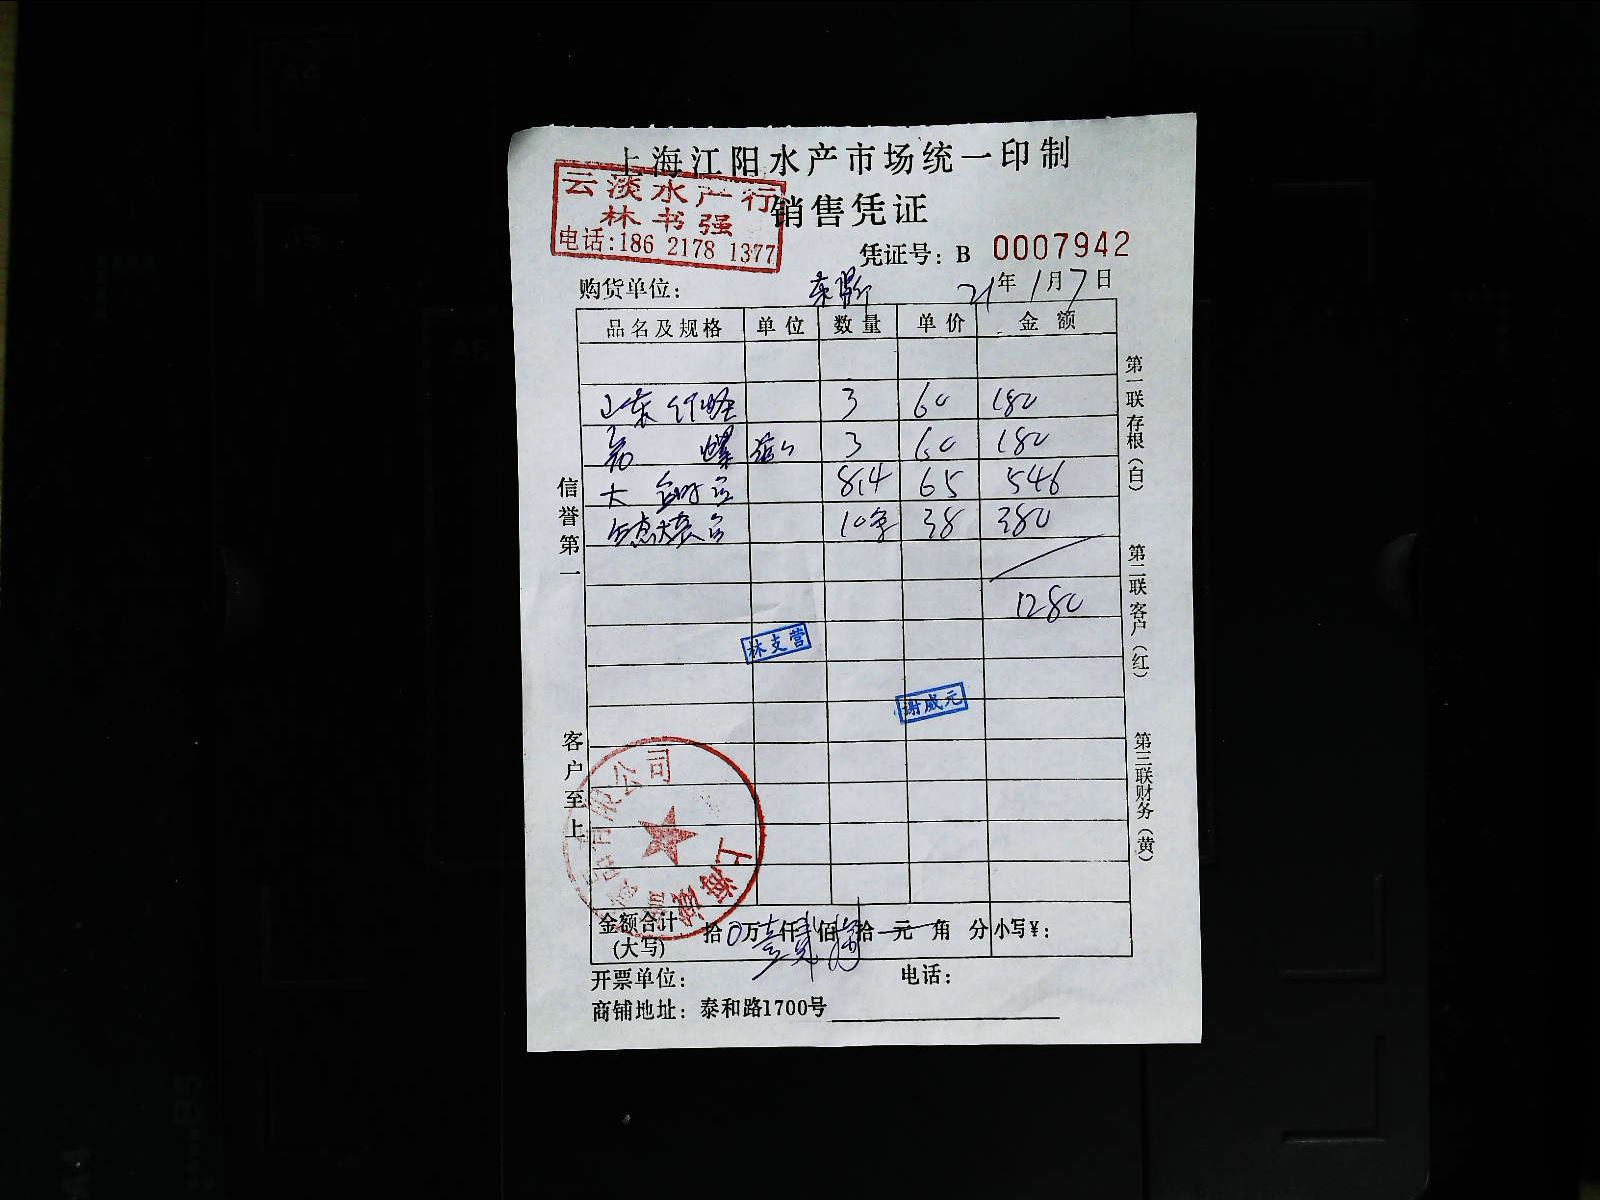 上海江阳水产市场统一印制
云淡水产行
林书强
电话:186 2178 1377
销售凭证
凭证号: B 0007942
购货单位: 21年1月7日
品名及规格 单位 数量 单价 金额
山东 3 60 180
螺 3 60 180
大 8.4 65 546
10 38 380
1280
林支营
谢威元
信誉第一
客户至上
第一联存根(白)
第二联客户(红)
第三联财务(黄)
上海 有限公司
金额合计(大写) 拾0万壹仟贰佰捌拾元角分 小写¥:
开票单位: 电话:
商铺地址: 泰和路1700号